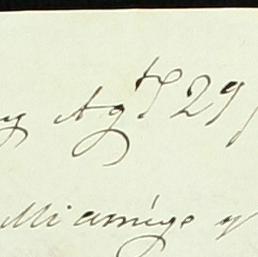 y Agto 29
Mi amigo y